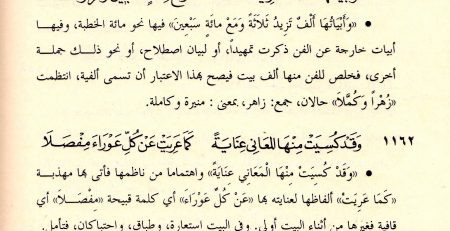 • «وَأَبْيَاتُهَا أَلْفٌ تَزِيدُ ثَلَاثَةً وَمَعْ مِائَةٍ سَبْعِينَ» فيها نحو مائة الخطبة، وفيها
أبيات خارجة عن الفن ذكرت تمهيداً، أو لبيان اصطلاح، أو نحو ذلك جملة
أخرى، فخلص للفن منها ألف بيت فيصح بهذا الاعتبار أن تسمى ألفية، انتظمت
«زُهْراً وَكُمَّلَا» حالان، جمع: زاهر، بمعنى: منيرة و كاملة.
١١٦٢ وَقَدْ كُسِيَتْ مِنْهَا الْمَعَانِي عِنَايَةً كَمَا عَرِيَتْ عَنْ كُلِّ عَوْرَاءَ مِفْصَلَا
• «وَقَدْ كُسِيَتْ مِنْهَا الْمَعَانِي عِنَايَةً» واهتماما من ناظمها فأتى بها مهذبة
«كَمَا عَرِيَتْ» ألفاظها لعنايته بها «عَنْ كُلِّ عَوْرَاءَ» أي كلمة قبيحة «مِفْصَلَا» أي
قافية فغيرها من أثناء البيت أولى. وفي البيت استعارة، وطباق، واحتباكان، فتأمل.